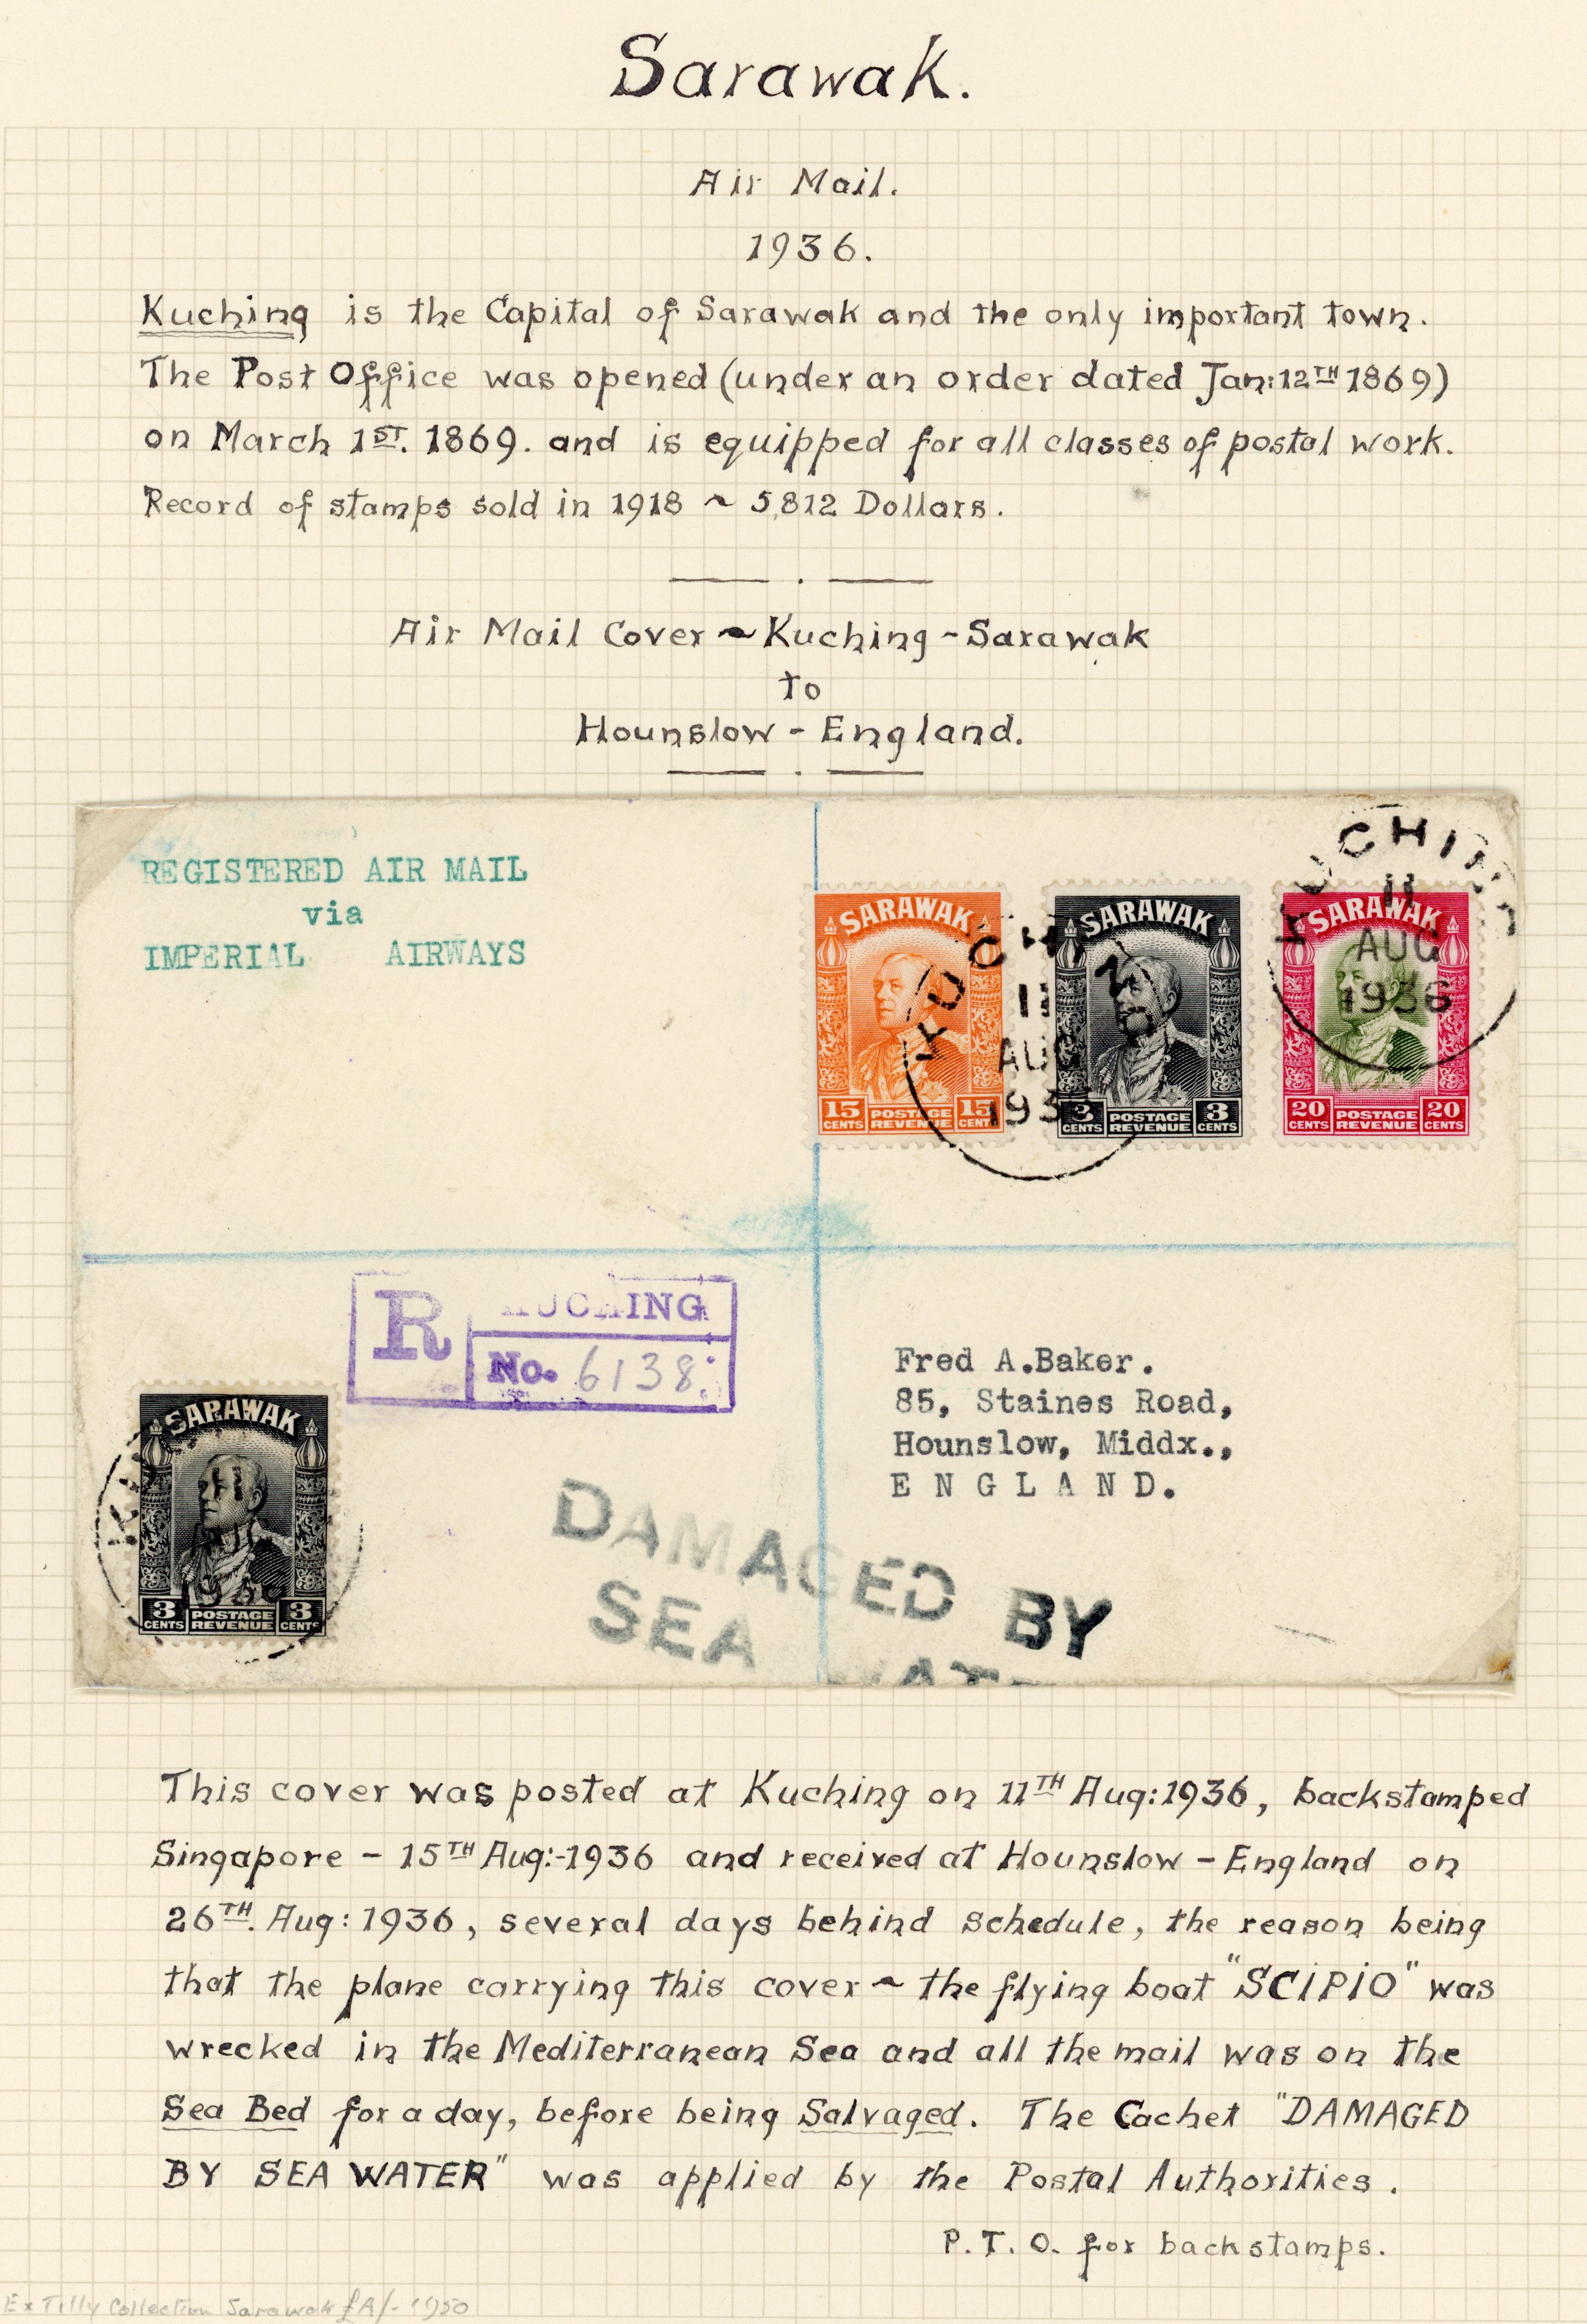 Sarawak.
Air Mail.
1936.
Kuching is the Capital of Sarawak and the only important town.
The Post Office was opened (under an order dated Jan: 12TH 1869)
on March 1ST. 1869. and is equipped for all classes of postal work.
Record of stamps sold in 1918 ~ 5,812 Dollars.
Air Mail Cover ~ Kuching - Sarawak
to
Hounslow - England.
REGISTERED AIR MAIL
via
IMPERIAL AIRWAYS
SARAWAK
15 CENTS POSTAGE REVENUE 15 CENTS
SARAWAK
3 CENTS POSTAGE REVENUE 3 CENTS
SARAWAK
20 CENTS POSTAGE REVENUE 20 CENTS
KUCHING
11
AUG
193
KUCHING
11
AUG
1936
R KUCHING
No. 6138
Fred A.Baker.
85, Staines Road,
Hounslow, Middx.,
ENGLAND.
SARAWAK
3 CENTS POSTAGE REVENUE 3 CENTS
DAMAGED BY
SEA WAT
This cover was posted at Kuching on 11TH Aug: 1936, backstamped
Singapore - 15TH Aug:-1936 and received at Hounslow - England on
26TH. Aug: 1936, several days behind schedule, the reason being
that the plane carrying this cover ~ the flying boat "SCIPIO" was
wrecked in the Mediterranean Sea and all the mail was on the
Sea Bed for a day, before being Salvaged. The Cachet "DAMAGED
BY SEA WATER" was applied by the Postal Authorities.
P.T.O. for backstamps.
Ex Tilly Collection Sarawak 1950